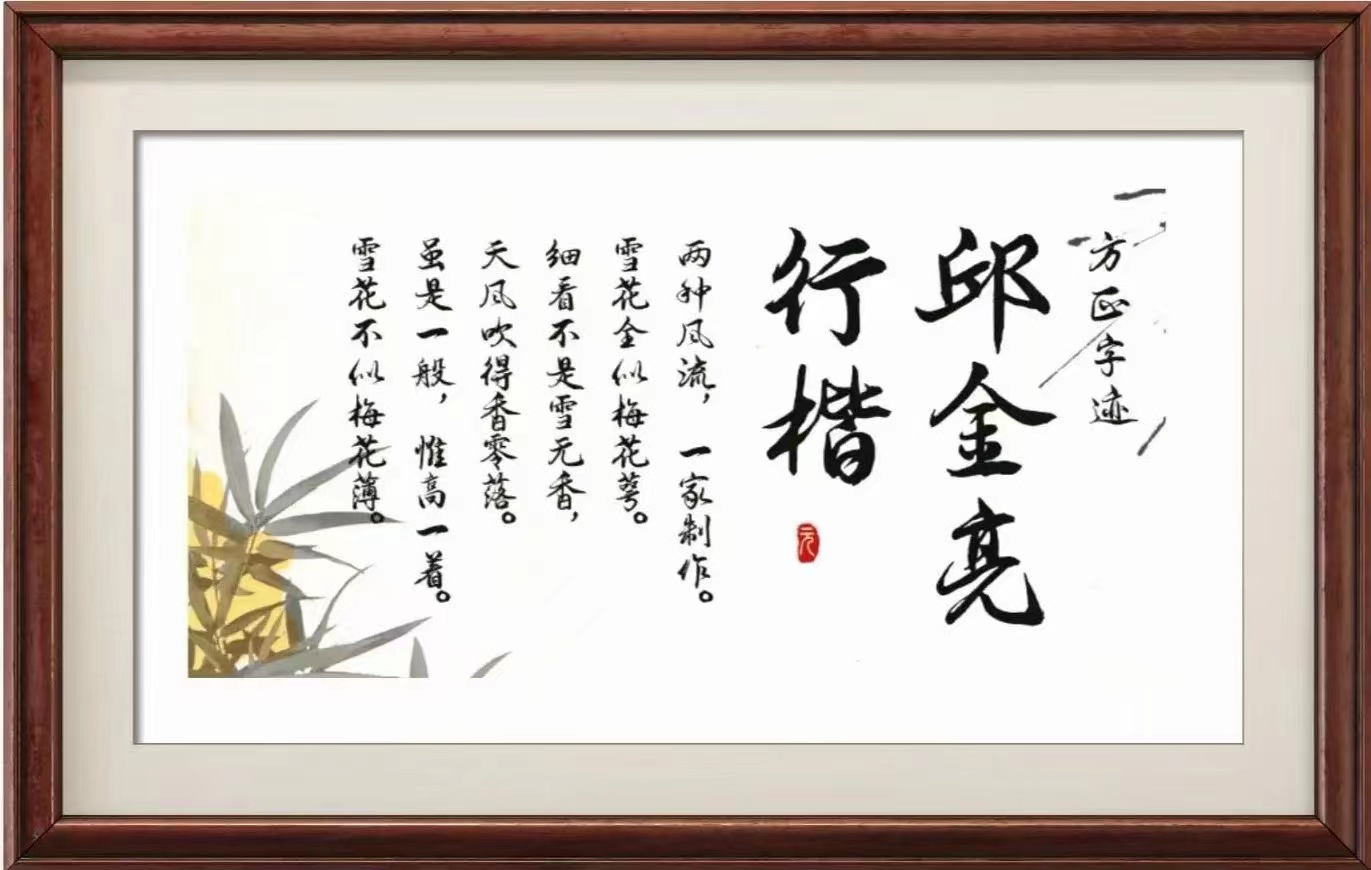 方正字迹
邱金亮
行楷
元
两种风流，一家制作。
雪花全似梅花萼。
细看不是雪无香，
天风吹得香零落。
虽是一般，惟高一着。
雪花不似梅花薄。